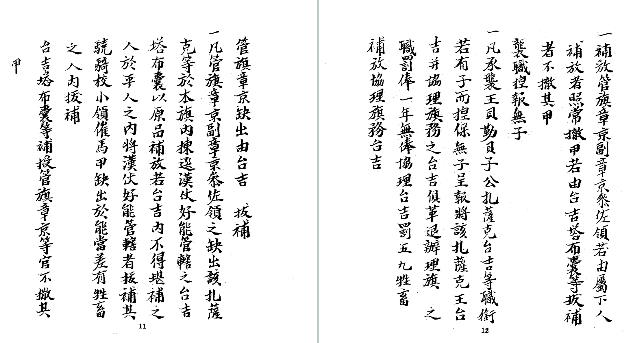 管旗章京缺出由台吉 拔補
一凡管旗章京副章京叅佐領之缺出該扎薩
克等於本旗內揀選漢仗好能管轄之台吉
塔布囊以原品補放若台吉內不得堪補之
人於平人之內將漢仗好能管轄者拔補其
驍騎校小領催馬甲缺出於能當差有牲畜
之人內拔補
台吉塔布囊等補授管旗章京等官不撤其
甲
11
一補放管旗章京副章京叅佐領若由屬下人
補放者照常撤甲若由台吉塔布囊等拔補
者不撤其甲
襲職捏報無子
一凡承襲王貝勒貝子公扎薩克台吉等職銜
若有子而捏保無子呈報將該扎薩克王台
吉并協理旗務之台吉俱革退辦理旗 之
職罰俸一年無俸協理台吉罰五九牲畜
補放協理旗務台吉
12